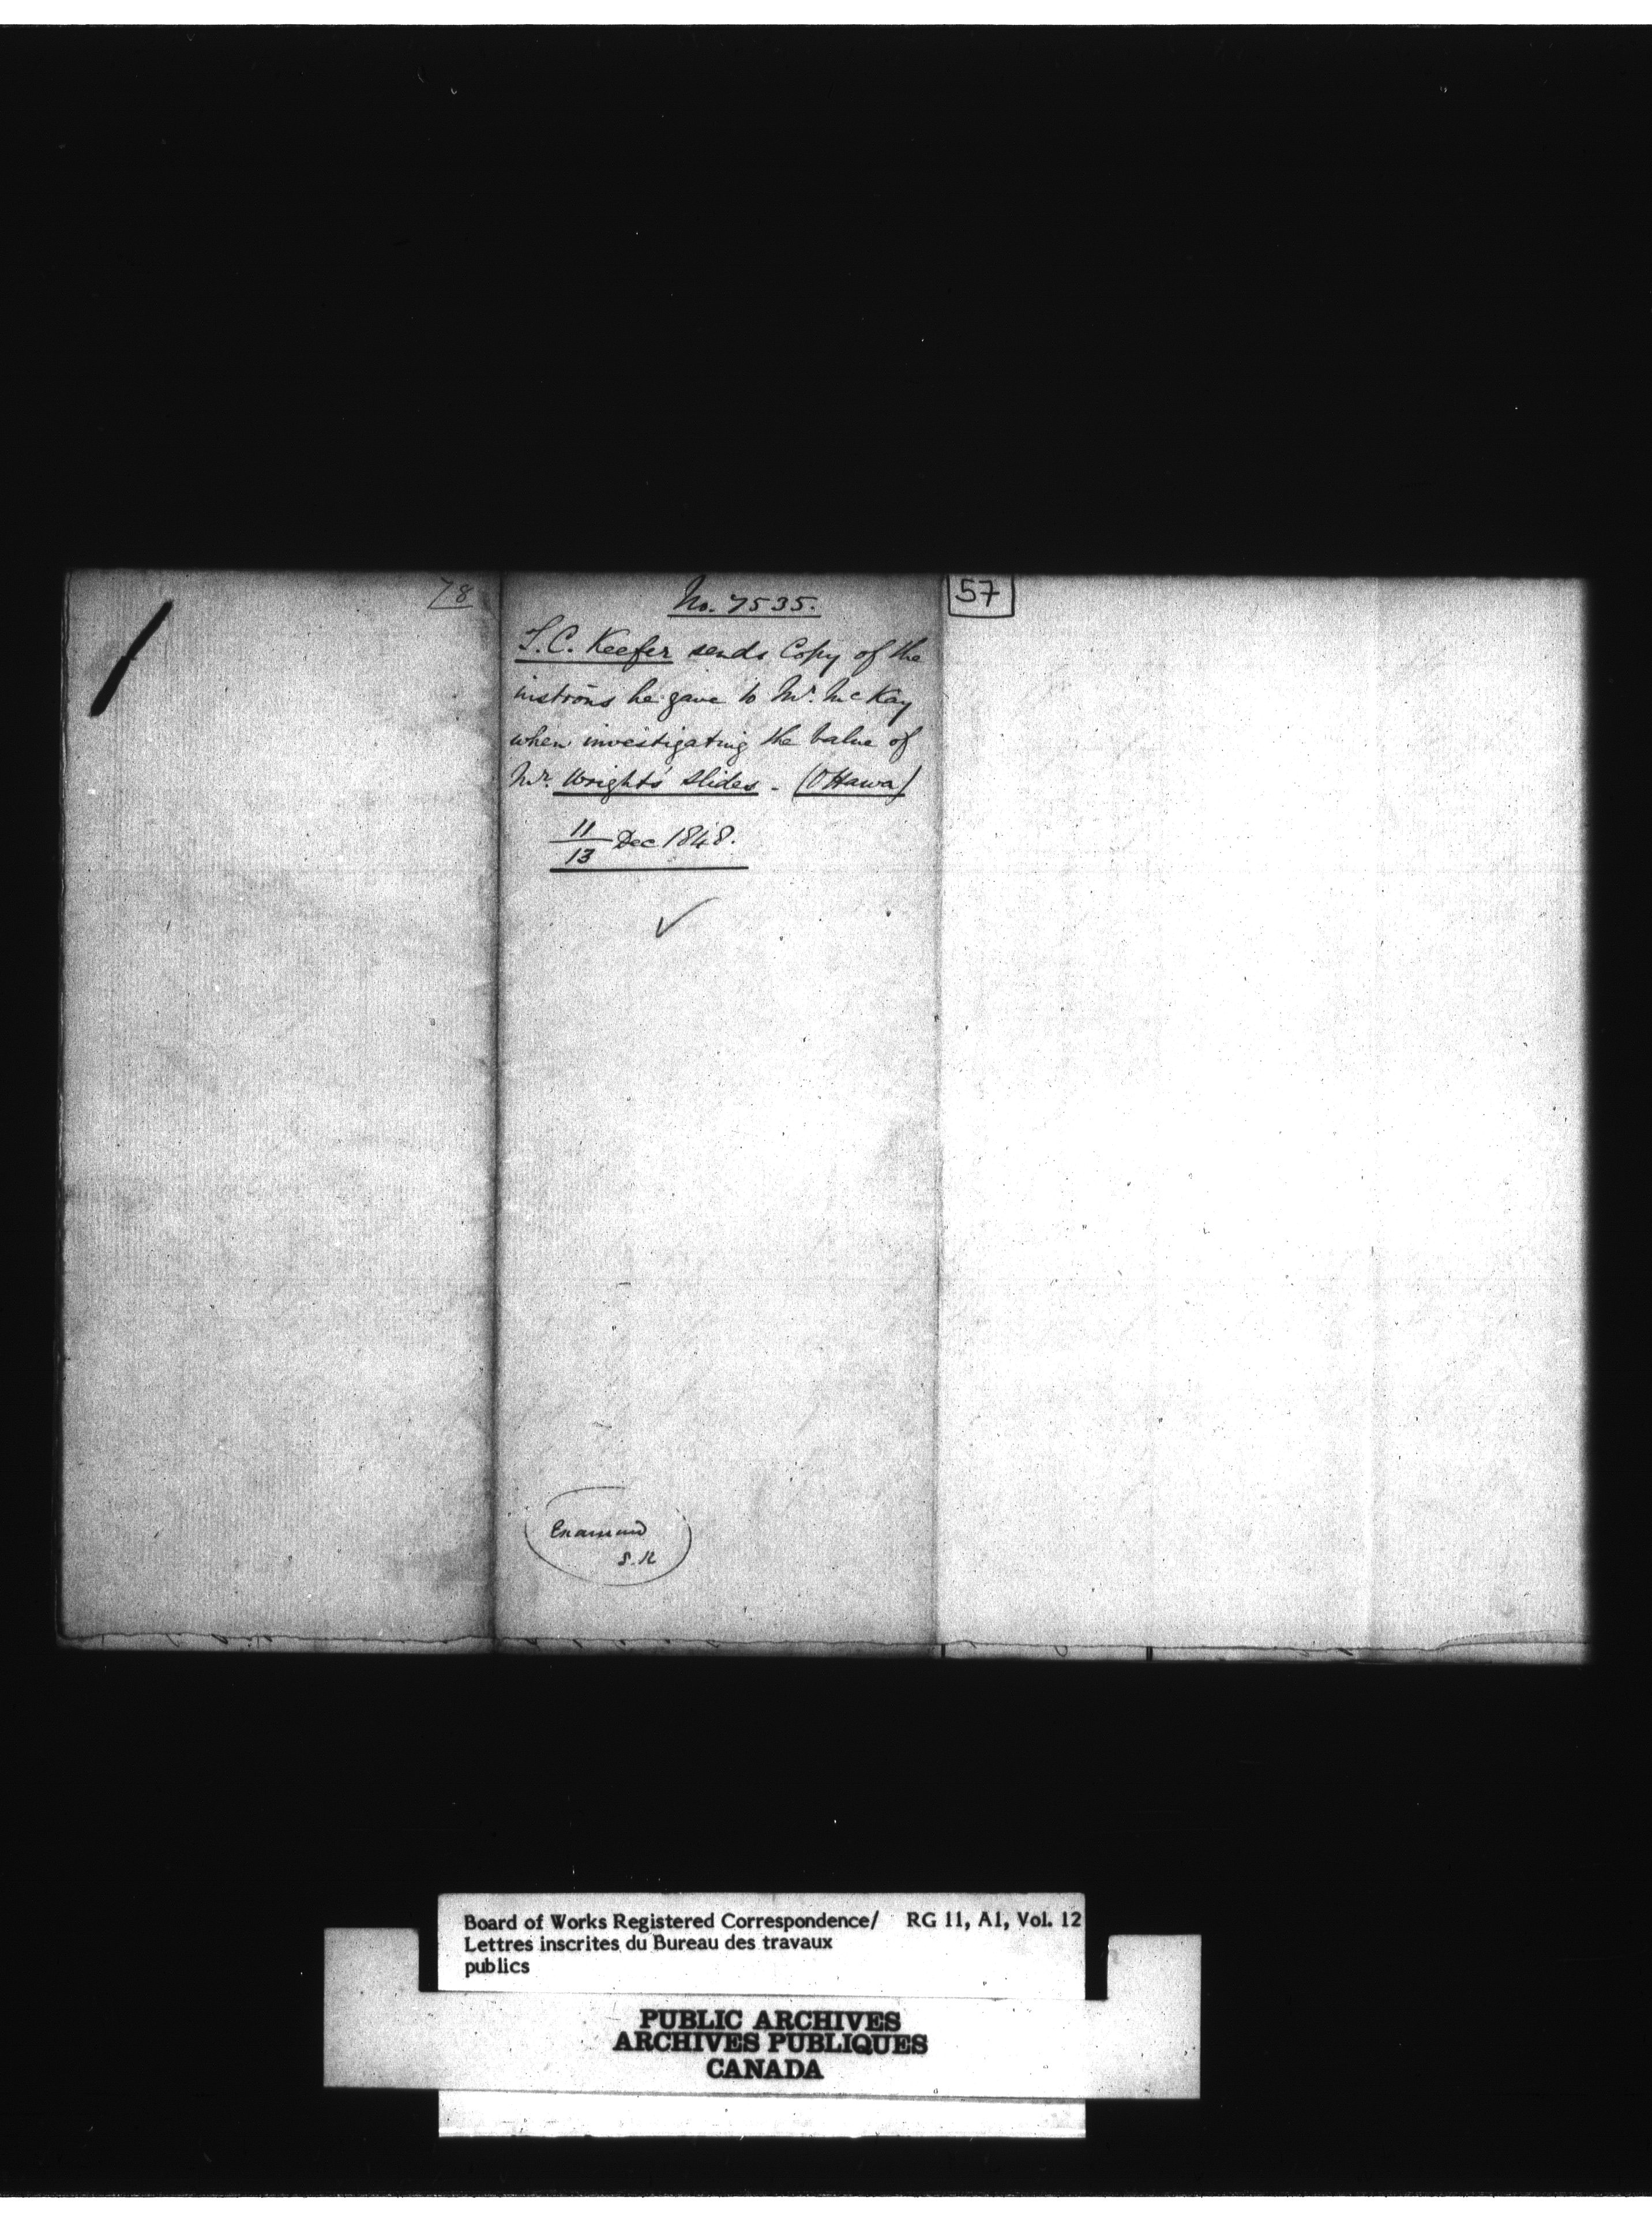 78
No. 7535.
57
T.C. Keefer sends Copy of the
instrōns he gave to Mr. McKay
when investigating the value of
Mr. Wright's Slides - (Ottawa)
11/13 Dec 1848.
Examined
S.K
Board of Works Registered Correspondence/ RG 11, A1, Vol. 12
Lettres inscrites du Bureau des travaux
publics
PUBLIC ARCHIVES
ARCHIVES PUBLIQUES
CANADA